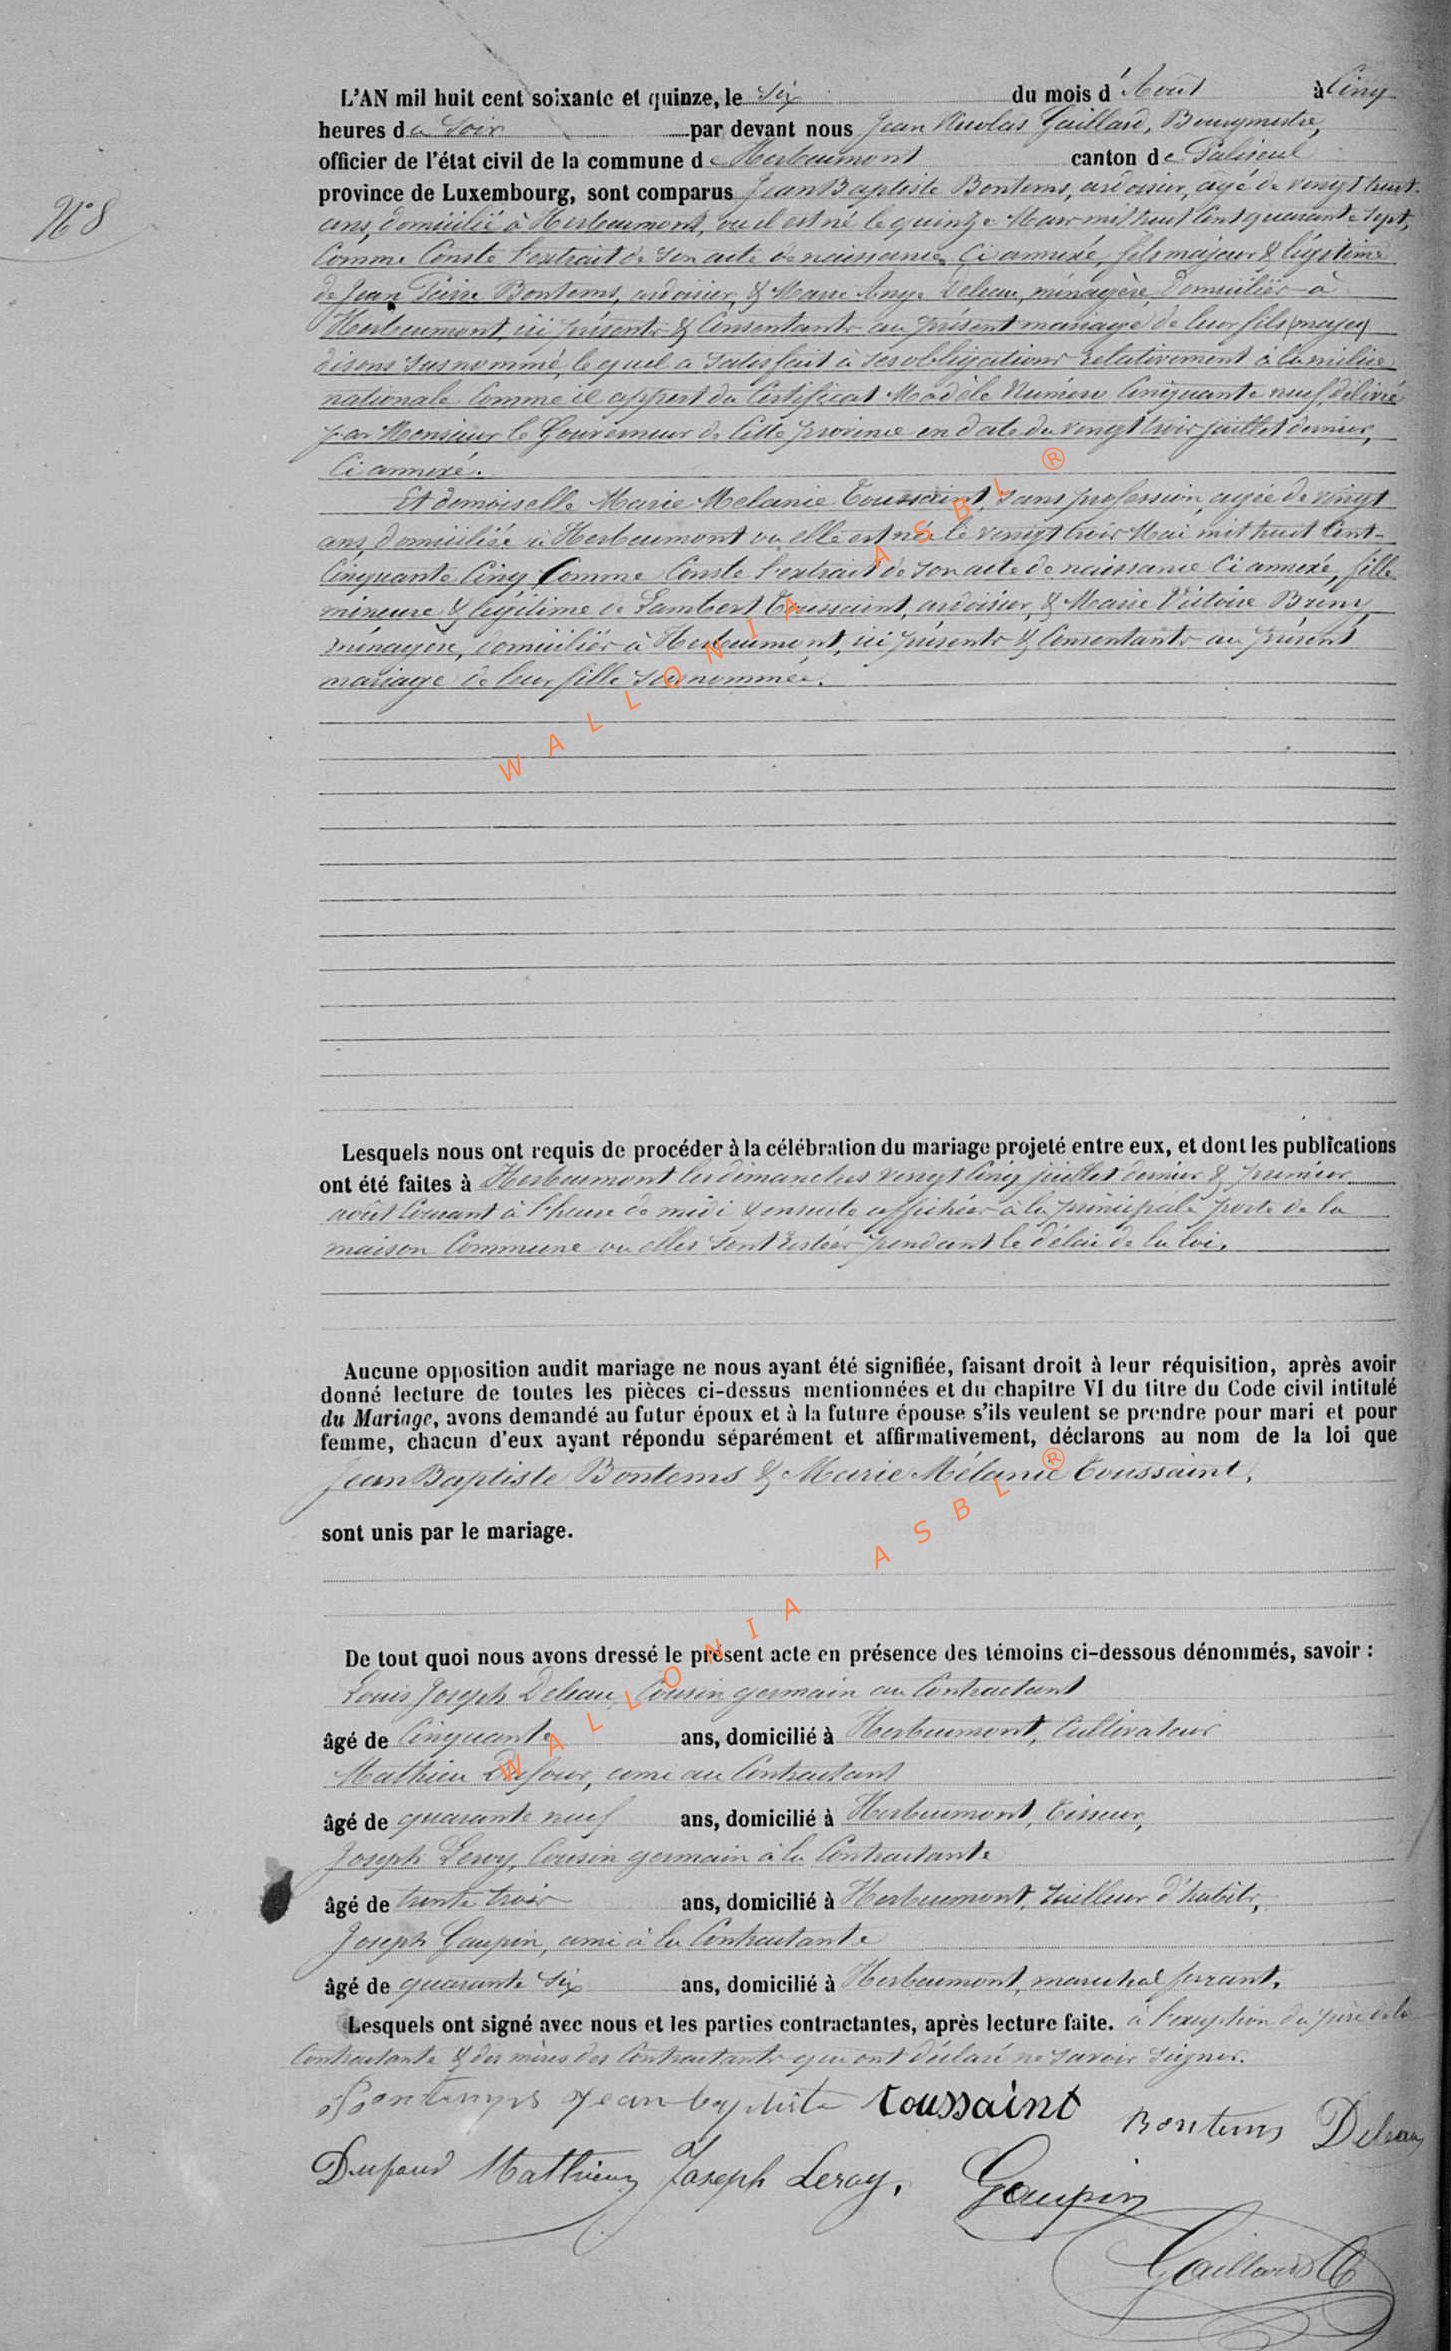 N° 8
L'AN mil huit cent soixante et quinze, le six du mois d'Août à Cinq
heures du Soir par devant nous Jean Nicolas Gaillard, Bourgmestre,
officier de l'état civil de la commune de Herbeumont canton de Paliseul
province de Luxembourg, sont comparus Jean Baptiste Bontems, ardoisier, âgé de vingt huit
ans, domicilié à Herbeumont, où il est né le quinze Mars mil huit Cent quarante sept,
Comme Conste l'extrait de son acte de naissance Ci annexé, fils majeur & légitime
de Jean Pierre Bontems, ardoisier, & Marie Ange Deleau, ménagère, domiciliés à
Herbeumont, ici présents & Consentants au présent mariage de leur fils (majeur)
disons susnommé, lequel a satisfait à ses obligations relativement à la milice
nationale Comme il appert du Certificat Modèle Numéro Cinquante neuf, délivré
par Monsieur le Gouverneur de Cette province en date du vingt trois juillet dernier,
Ci annexé.
Et demoiselle Marie Melanie Toussaint, sans profession, agée de vingt
ans, domiciliée à Herbeumont ou elle est née le vingt trois Mai mil huit Cent-
Cinquante Cinq, Comme Conste l'extrait de son acte de naissance Ci annexé, fille
mineure & légitime de Lambert Toussaint, ardoisier, & Marie Victoire Breny,
ménagère, domiciliés à Herbeumont, ici présents & Consentants au présent
mariage de leur fille susnommée.
WALLONIA ASBL ®
Lesquels nous ont requis de procéder à la célébration du mariage projeté entre eux, et dont les publications
ont été faites à Herbeumont les dimanches vingt Cinq juillet dernier & premier
août Courant à l'heure de midi & ensuite affichées à la principale porte de la
maison Commune ou elles sont restées pendant le délai de la loi.
Aucune opposition audit mariage ne nous ayant été signifiée, faisant droit à leur réquisition, après avoir
donné lecture de toutes les pièces ci-dessus mentionnées et du chapitre VI du titre du Code civil intitulé
du Mariage, avons demandé au futur époux et à la future épouse s'ils veulent se prendre pour mari et pour
femme, chacun d'eux ayant répondu séparément et affirmativement, déclarons au nom de la loi que
Jean Baptiste Bontems & Marie Mélanie Toussaint,
sont unis par le mariage.
WALLONIA ASBL ®
De tout quoi nous avons dressé le présent acte en présence des témoins ci-dessous dénommés, savoir :
Louis Joseph Deleau, Cousin germain au Contractant
âgé de Cinquante ans, domicilié à Herbeumont, Cultivateur
Mathieu Dufour, ami au Contractant
âgé de quarante neuf ans, domicilié à Herbeumont, Tisseur,
Joseph Leroy, Cousin germain à la Contractante
âgé de trente trois ans, domicilié à Herbeumont, tailleur d'habits,
Joseph Gaupin, ami à la Contractante
âgé de quarante six ans, domicilié à Herbeumont, maréchal ferrant,
Lesquels ont signé avec nous et les parties contractantes, après lecture faite. à l'exception du père de la
Contractante & des mères des Contractants qui ont déclaré ne savoir signer.
Bontemps Jean baptiste Toussaint Bontems Deleau
Dufour Mathieu Joseph Leroy, Gaupin
Gaillard